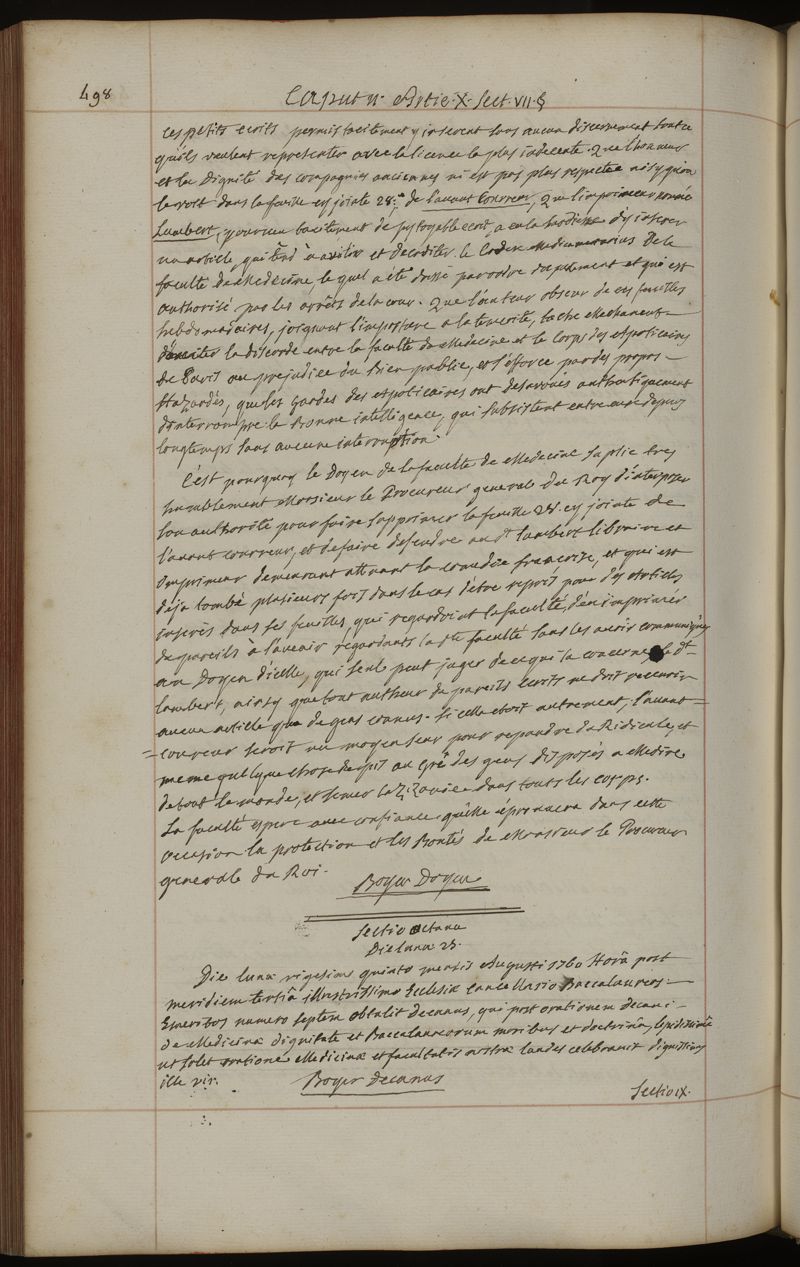 498
Caput 11. Artic. X. Sect. VII. §
ces petits ecrits permis tacitement y inserent sans aucun discernement tout ce
qu'ils veulent representer avec la licence la plus indecente. Que l'honneur
et la Dignité des compagnies anciennes ni est pas plus respectée ainsy qu'on
le voit dans la feuille cy jointe 28.e de l'avant Coureur, Que l'imprimeur nommé
Lambert, pourvu tacitement de ... ecrit, a eu la hardiesse d'y inserer
un article, qui tend à avilir et decrediter le Codex Medicamentarius De la
faculté De Medecine, le quel a été dressé par ordre du parlement et qui est
authorisé par les arrêts de la cour. Que l'auteur obscur de ces feuilles
hebdomadaires, joignant l'imposture a la temerité, tache mechament
d'exciter la discorde entre la faculté de Medecine et le corps des Apoticaires
de Paris au prejudice du Bien public, et s'efforce par des propos
Hazardés, que les gardes des Apoticaires ont desavoués authentiquement
d'interrompre la Bonne intelligence, qui subsistent entre eux depuis
longtemps sans aucune interruption.
C'est pourquoy le Doyen de la faculté de Medecine suplie tres
humblement Monsieur le Procureur general du Roy d'interposer
son authorité pour faire supprimer la feuille 28. cy jointe de
l'avant coureur, et de faire defendre au dt. Lambert libraire et
Imprimeur demeurant attenant la comedie françoise, et qui est
deja tombé plusieurs fois dans le cas d'etre repris pour des Articles
inserés dans ses feuilles, qui regardoient la faculté, d'en imprimer
de pareils à l'avenir regardants la dte faculté sans les avoir communiqués
au Doyen d'icelle, qui seul peut juger de ce qui la concerne, le dt
Lambert, ainsy que tout autheur de pareils ecrits ne doit recevoir
aucun article que de gens connus. Si cella etoit autrement, l'avant=
=coureur seroit un moyen seur pour repandre du Ridicule, et
meme quelque chose de pis au gré des gens disposés a Medire
de tout le monde, et semer la Zizanie dans touts les corps.
La faculté espere avec confiance qu'elle éprouvera dans cette
occasion la protection et les Bontés de Monsieur le Procureur
generale du Roi.
Boyer Doyen
Sectio octava
Die lunæ 25.
Die lunæ vigesima quinta mensis Augusti 1760 Horâ post
meridiem tertiâ illustrissimo Ecclesiæ Cancellario Baccalaureos
Emeritos numero septem obtulit decanus, qui post orationem decani
de Medicinæ dignitate et Baccalaureorum moribus et doctrinâ, lepidissimâ
ut solet oratione Medicinæ et facultatis nostræ laudes celebravit dignissimus
ille vir.
Boyer decanus
Sectio IX.